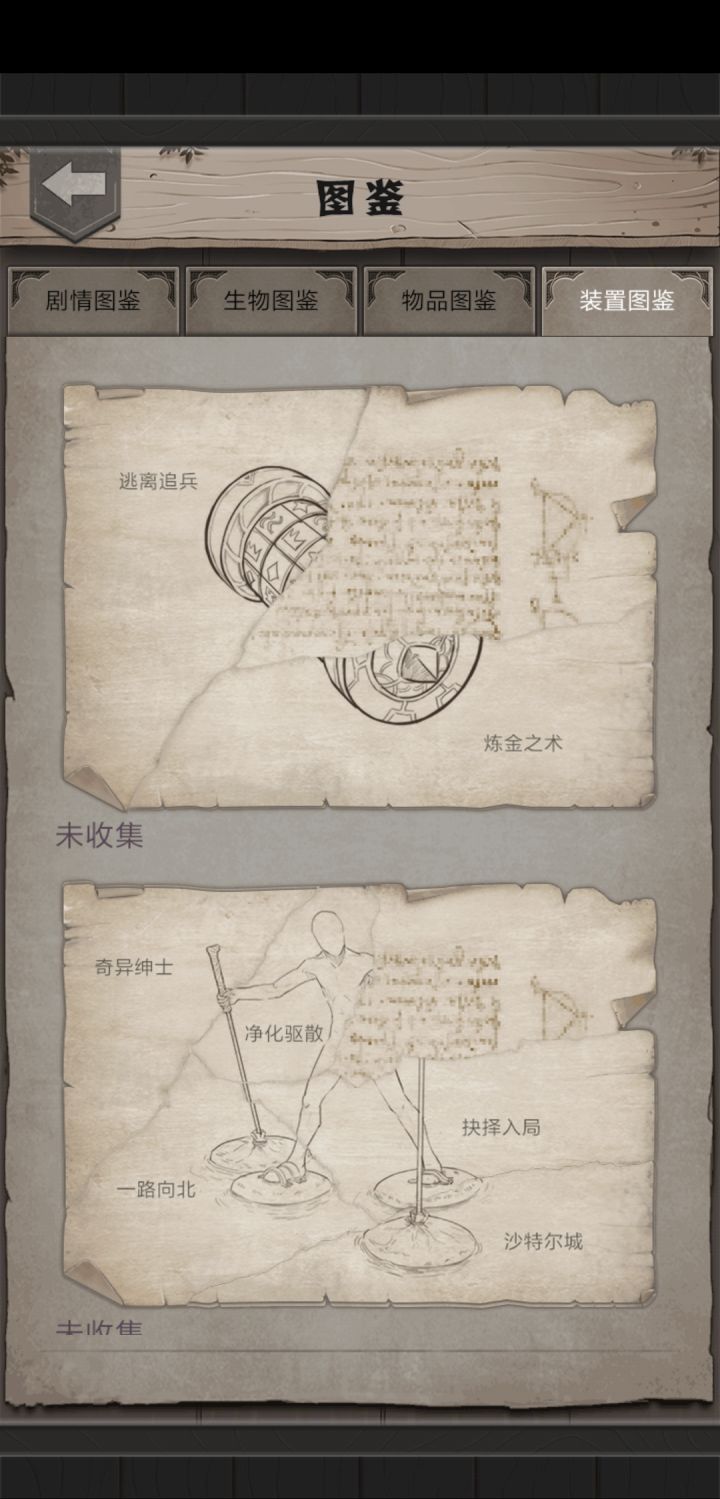 图鉴
剧情图鉴
生物图鉴
物品图鉴
装置图鉴
逃离追兵
炼金之术
未收集
奇异绅士
净化驱散
抉择入局
一路向北
沙特尔城
未收集